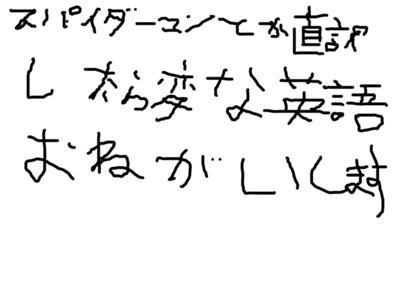 スパイダーマンとか直訳
したら変な英語
おねがいします